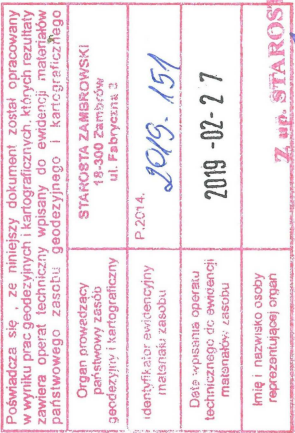 Poświadcza się, że niniejszy dokument został opracowany
w wyniku prac geodezyjnych i kartograficznych, których rezultaty
zawiera operat techniczny wpisany do ewidencji materiałów
państwowego zasobu geodezyjnego i kartograficznego
Organ prowadzący
państwowy zasób
geodezyjny i kartograficzny
STAROSTA ZAMBROWSKI
18-300 Zambrów
ul. Fabryczna 3
Identyfikator ewidencyjny
materiału zasobu
P.2014.
2019-151
Data wpisania operatu
technicznego do ewidencji
materiałów zasobu
2019 -02- 2 7
Imię i nazwisko osoby
reprezentującej organ
Z up. STAROS